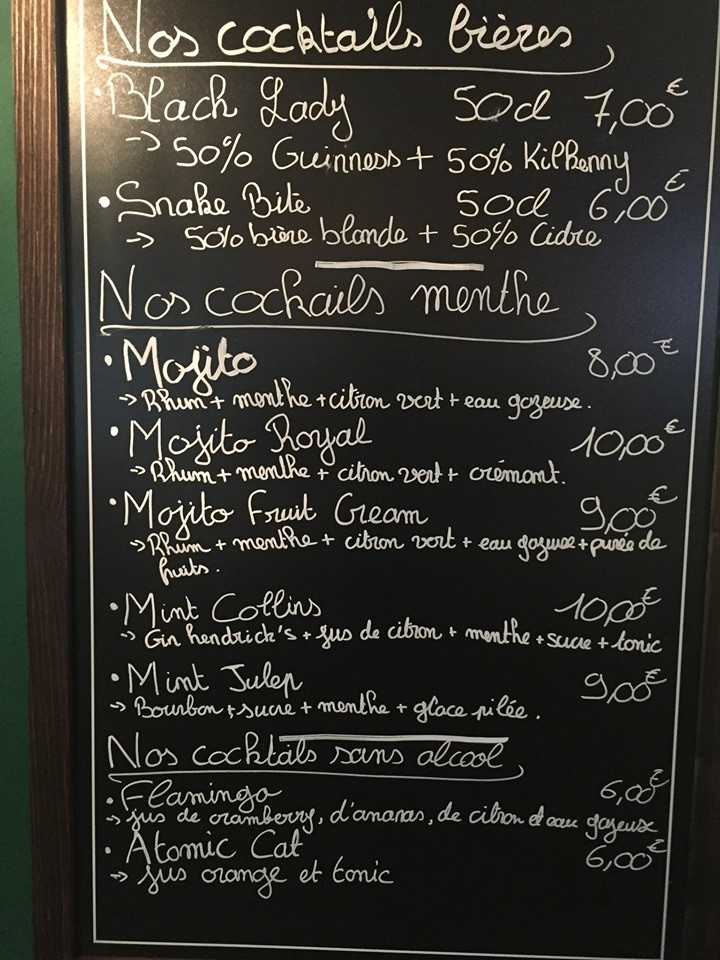 Nos cocktails bières
• Black Lady 50cl 7,00€
-> 50% Guinness + 50% Kilkenny
• Snake Bite 50cl 6,00€
-> 50% bière blonde + 50% Cidre
Nos cocktails menthe
• Mojito 8,00€
-> Rhum + menthe + citron vert + eau gazeuse.
• Mojito Royal 10,00€
-> Rhum + menthe + citron vert + crémant.
• Mojito Fruit Cream 9,00€
-> Rhum + menthe + citron vert + eau gazeuse + purée de
fruits.
• Mint Collins 10,00€
-> Gin hendrick's + jus de citron + menthe + sucre + tonic
• Mint Julep 9,00€
-> Bourbon + sucre + menthe + glace pilée.
Nos cocktails sans alcool
• Flamingo 6,00€
-> jus de cramberry, d'ananas, de citron et eau gazeuse
• Atomic Cat 6,00€
-> jus orange et tonic